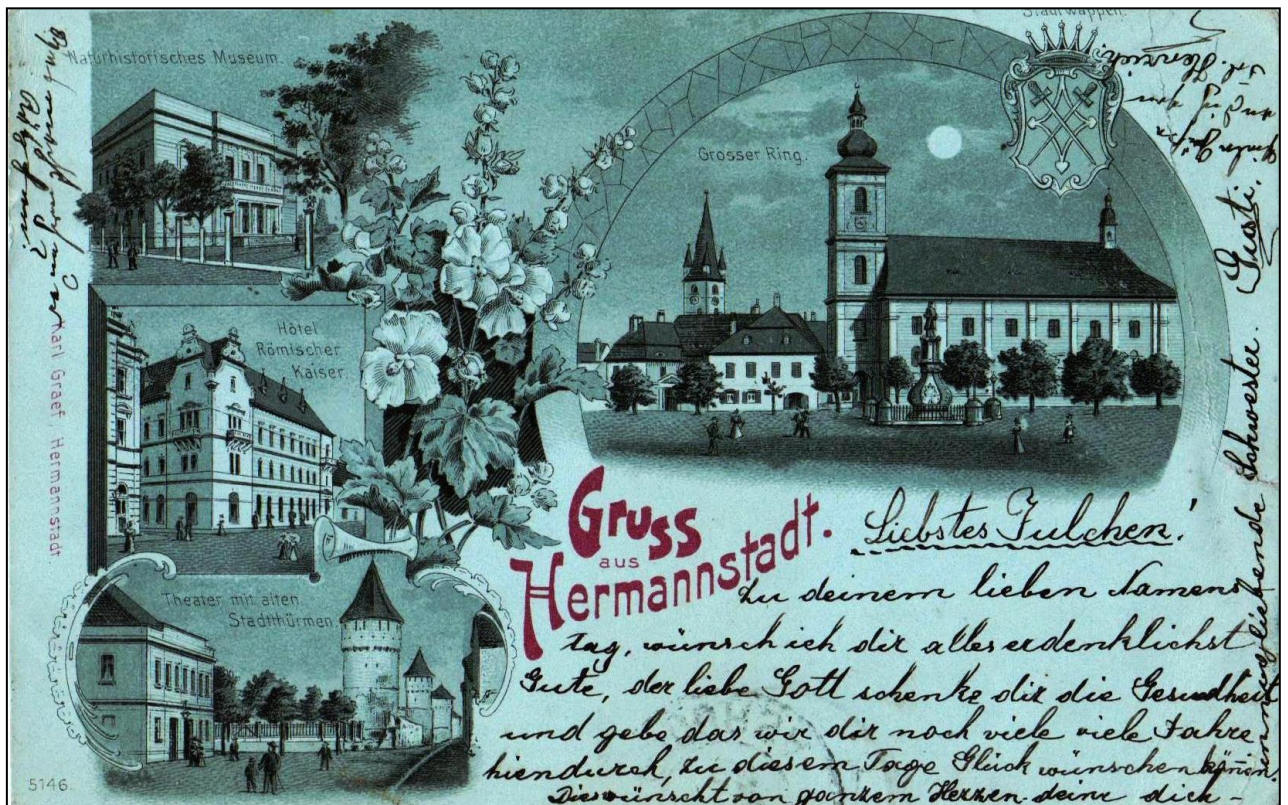 Naturhistorisches Museum.
Stadtwappen.
Grosser Ring.
Hôtel
Römischer
Kaiser.
Theater mit alten
Stadtthürmen.
Gruss
aus
Hermannstadt.
Karl Graef, Hermannstadt
5146.
Liebstes Julchen!
zu deinem lieben Namens
tag, wünsch ich dir alles erdenklichst
Gute, der liebe Gott schenke dir die Gesundheit
und gebe das wir dir noch viele viele Jahre
hiendurch, zu diesem Tage Glück wünschen können,
Dies wünscht von ganzem Herzen deine dich -
innigliebende Schwester. Gusti.